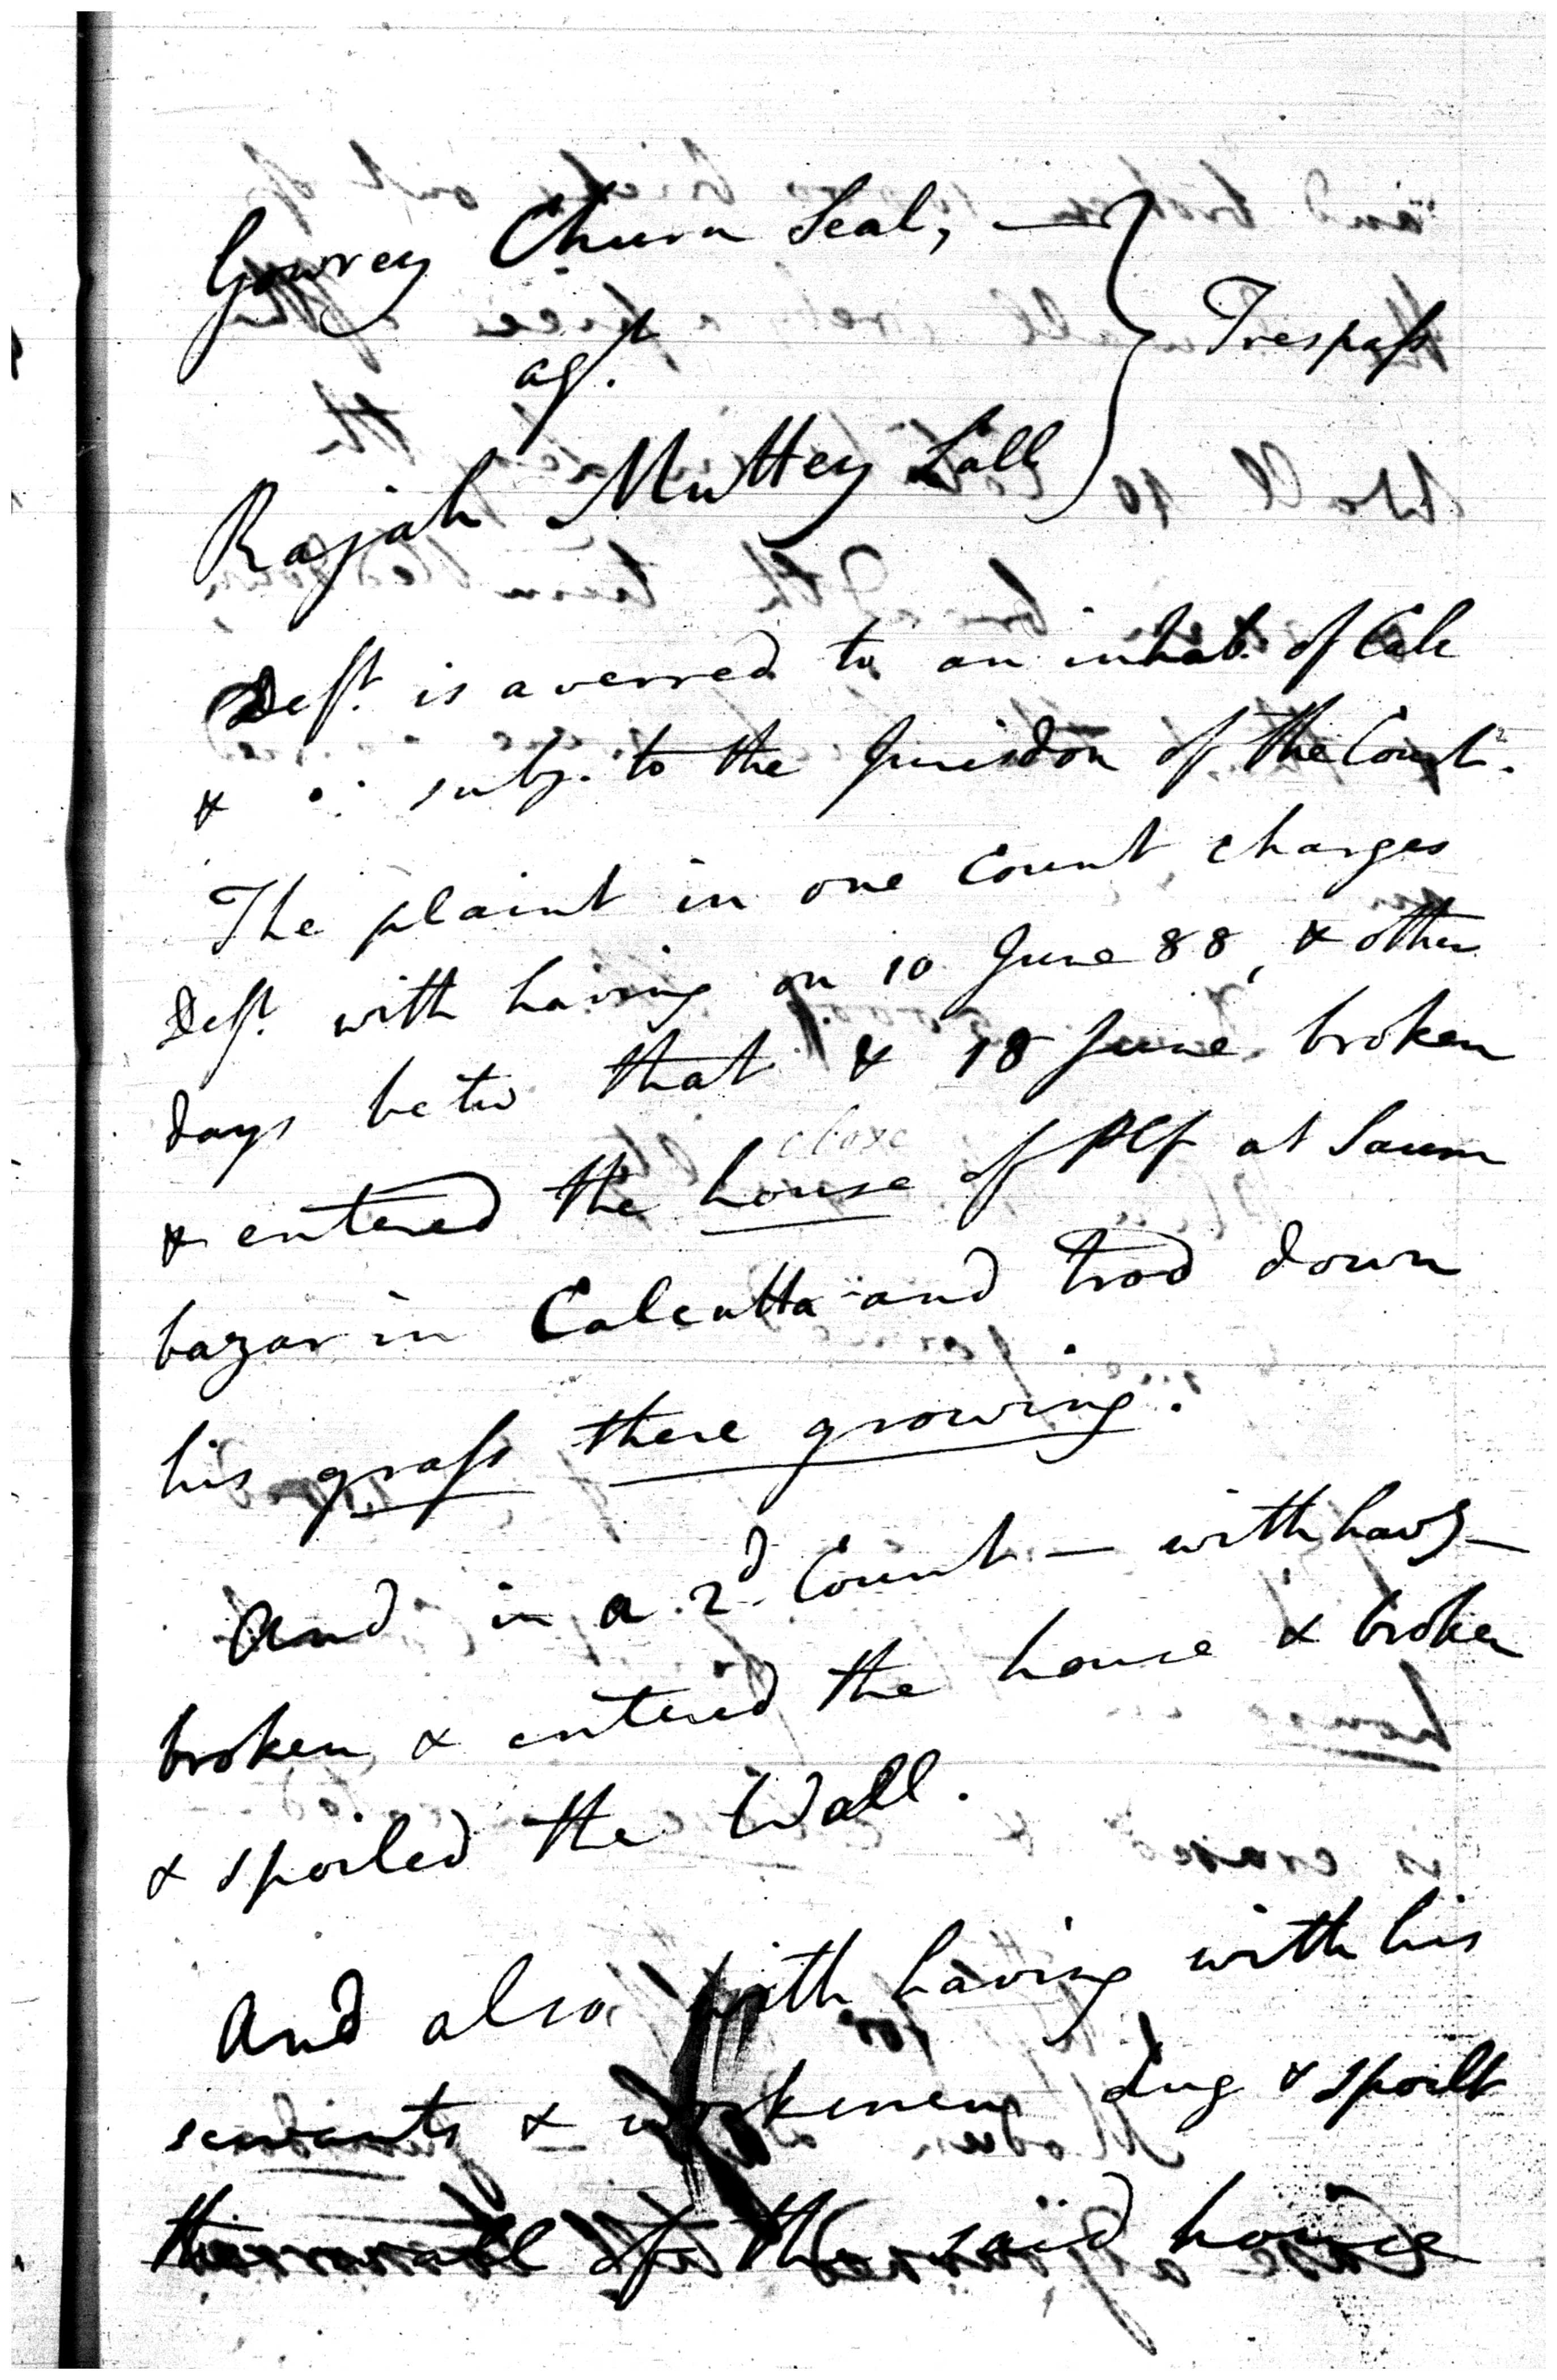 Gowrey Churn Seal, —
agst.
Trespass
Rajah Muttey Lall
Deft. is averred to an inhabt. of Calc
& ∴ subj. to the Jurisdon of the Court.
The plaint in one Count charges
Deft. with having on 10 June 88, & other
days betw that & 18 June, broken
close
& entered the house of Plf at Saum
bazar in Calcutta and trod down
his grass there growing.
And in a 2d. Count — with havg
broken & entered the house & broken
& spoiled the Wall.
And also with having with his
servants & workmen dug & spoilt
the wall of the said house